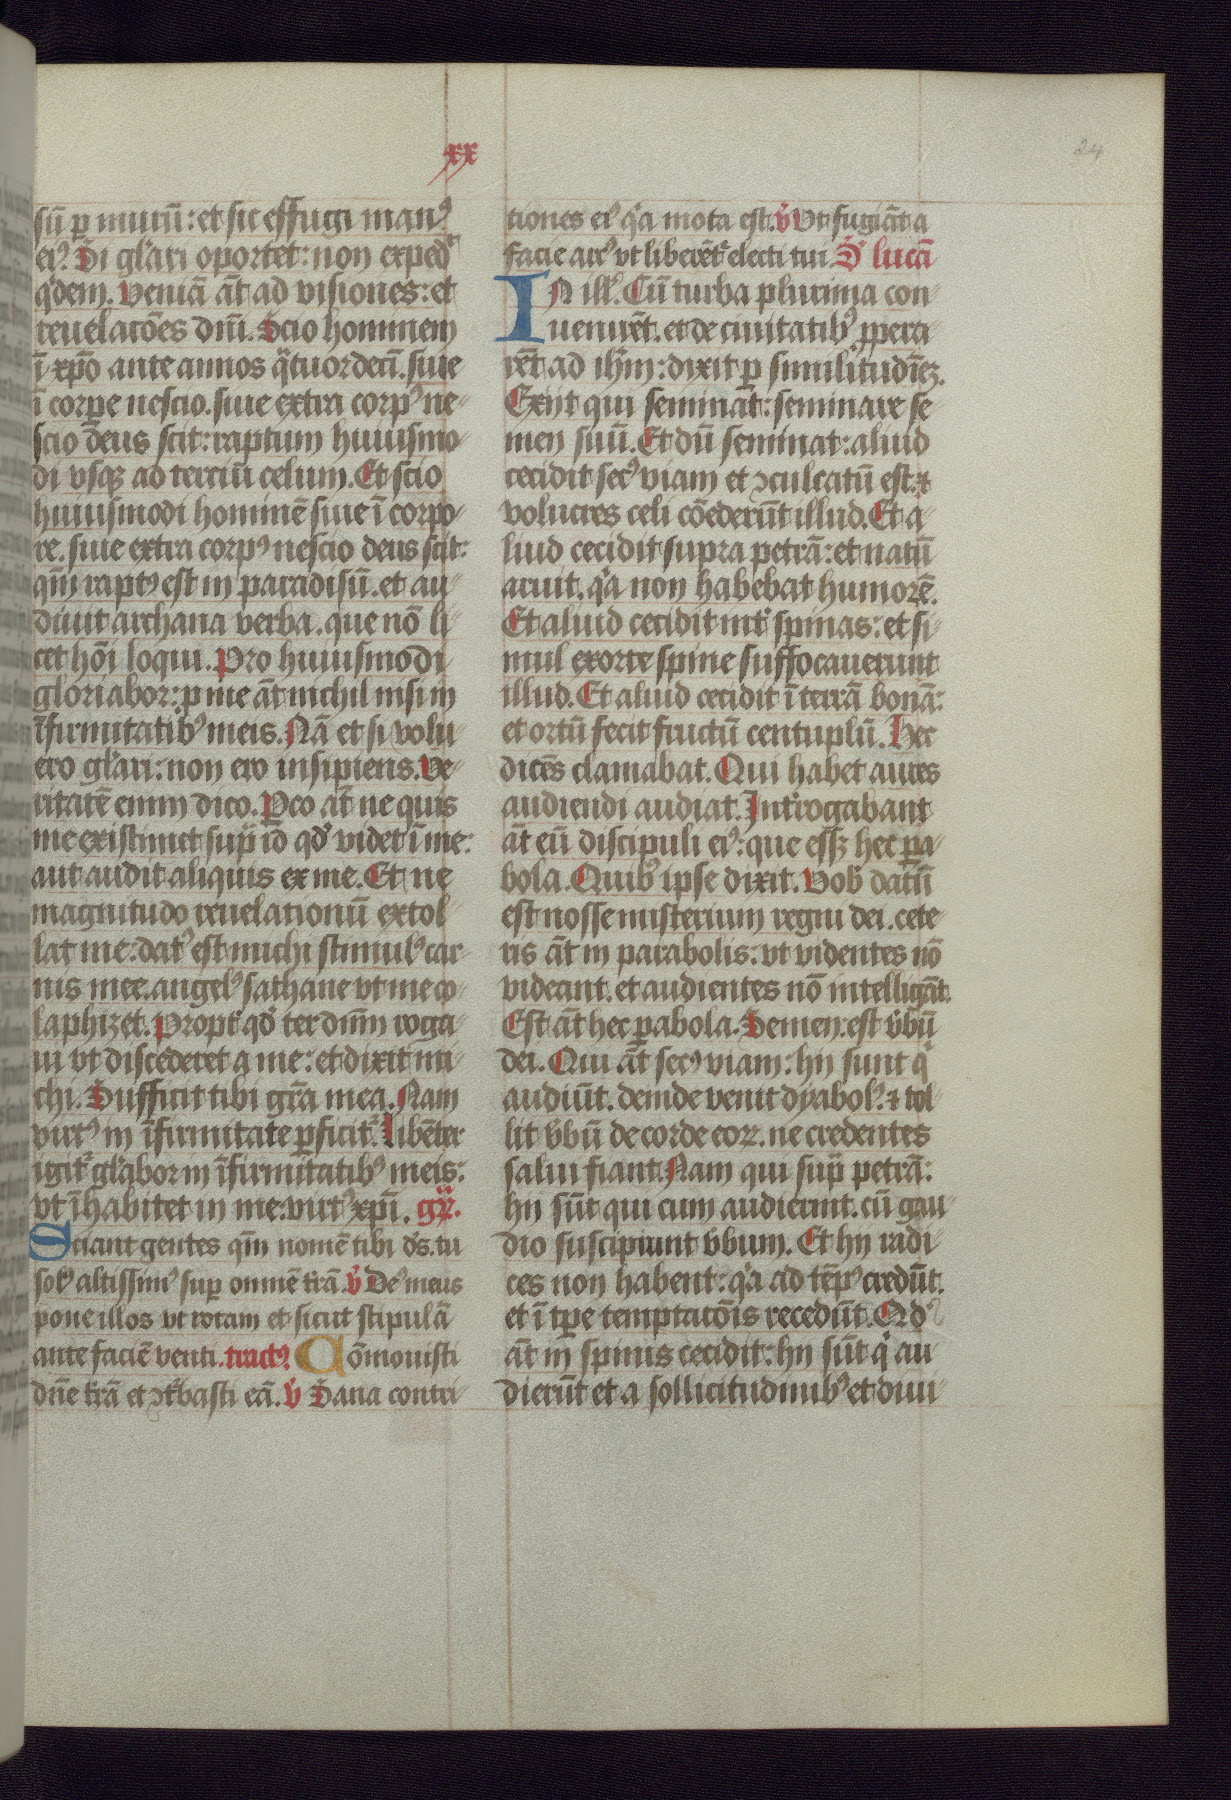 xx
24
sū p murū: et sic effugi manꝰ
eiꝰ. Si gl'ari oportet: non exped͛
q'dem. Veniā āt ad visiones: et
reuelatōes dnī. Scio hominem
ī xpō ante annos qͣtuordecī. siue
ī corpe nescio. siue extra corpꝰ ne-
scio deus scit: raptum huiusmo-
di vsq; ad terciū celum. Et scio
huiusmodi hominē siue ī corpo-
re. siue extra corpꝰ nescio deus scit:
qm̄ raptꝰ est in paradisū. et au-
diuit archana verba. que nō li-
cet hōi loqui. Pro huiusmodi
gloriabor: p me āt nichil nisi in
īfirmitatibꝰ meis. Nā et si volu-
ero gl'ari: non ero insipiens. Ve-
ritatē enim dico. Pco āt ne quis
me existimet sup id qd' videt ī me:
aut audit aliquis ex me. Et ne
magnitudo reuelationū extol-
lat me: datꝰ est michi stimulꝰ car-
nis mee. angelꝰ sathane vt me co-
laphizet. Propt' qd' ter dnm̄ roga-
ui vt discederet a me: et dixit mi-
chi. Sufficit tibi grā mea. Nam
virtꝰ in īfirmitate pficit'. Libēter
igit' gl'abor in īfirmitatibꝰ meis:
vt īhabitet in me: virtꝰ xpī. gr̄.
Sciant gentes qm̄ nomē tibi ds. tu
solꝰ altissimꝰ sup omnē t'rā. v̓ Deꝰ meus
pone illos vt rotam et sicut stipulā
ante faciē venti. tractꝰ Cōmouisti
dn̄e t'rā et ꝯt'basti eā. v̓ Sana contri-
tiones eiꝰ q'a mota est. v̓ Vt fugiāt a
facie arcꝰ vt liberēt' electi tui. S' lucā
IN ill'. Cū turba plurima con-
uenirēt. et de ciuitatibꝰ ppera-
rēt ad ihm̄: dixit p similitudinēꝫ.
Exijt qui seminat: seminare se-
men suū. Et dū seminat: aliud
cecidit secꝰ viam et ꝯculcatū est. ⁊
volucres celi cōederūt illud. Et a-
liud cecidit supra petrā: et natū
aruit. q'a non habebat humorē.
Et aliud cecidit int' spinas: et si-
mul exorte spine suffocauerunt
illud. Et aliud cecidit ī terrā bonā:
et ortū fecit fructū centuplū. Hec
dicēs clamabat. Qui habet aures
audiendi audiat. Int'rogabant
āt eū discipuli eiꝰ: que essꝫ hec pa-
bola. Quibꝰ ipse dixit. Vob' datū
est nosse misterium regni dei. cete-
ris āt in parabolis: vt videntes nō
videant. et audientes nō intelligāt.
Est āt hec pabola. Semen: est v'bū
dei. Qui āt secꝰ viam: hij sunt q'
audiūt. deinde venit dyabolꝰ. ⁊ tol-
lit v'bū de corde eoꝝ. ne credentes
salui fiant. Nam qui sup petrā:
hij sūt qui cum audierint. cū gau-
dio suscipiunt v'bum. Et hij radi-
ces non habent: q'a ad tēpꝰ credūt.
et ī tpe temptatōis recedūt. Qd'
āt in spinis cecidit: hij sūt q' au-
dierūt et a sollicitudinibꝰ et diui-